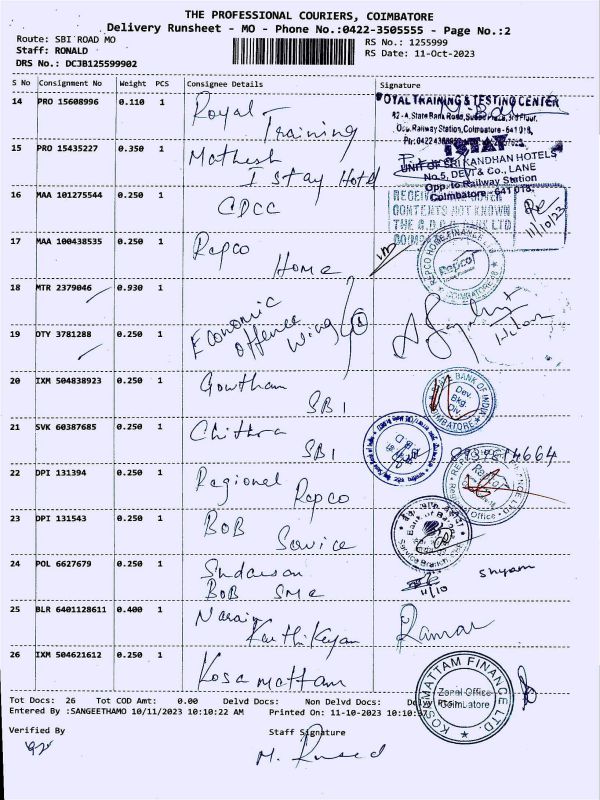 THE PROFESSIONAL COURIERS, COIMBATORE
Delivery Runsheet - MO - Phone No.:0422-3505555 - Page No.:2
Route: SBI ROAD MO
RS No.: 1255999
Staff: RONALD
RS Date: 11-Oct-2023
DRS No.: DCJB125599902
S No Consignment No Weight PCS Consignee Details Signature
14 PRO 15608996 0.110 1 Royal Training
TRAINING & TESTING CENTER
15 PRO 15435227 0.350 1 Mathesh I stay Hotel
UNIT OF SRI KANDHAN HOTELS
No.5, DEVI & Co., LANE
Opp. to Railway Station
Coimbatore - 641 018.
16 MAA 101275544 0.250 1 CDCC
CONTENTS NOT KNOWN
11/10/23
17 MAA 100438535 0.250 1 Repco Home
REPCO HOME FINANCE LTD
Repco
COIMBATORE
18 MTR 2379046 0.930 1 Economic offence wing
19 DTY 3781288 0.250 1
20 IXM 504838923 0.250 1 Gowtham SBI
BANK OF INDIA
Dev.
Bkg.
Div.
COIMBATORE
21 SVK 60387685 0.250 1 Chithra SBI
22 DPI 131394 0.250 1 Regional Repco
23 DPI 131543 0.250 1 BOB Service
Bank of Baroda
Service Branch
24 POL 6627679 0.250 1 BOB SME
11/10
Shyam
25 BLR 6401128611 0.400 1 Narain Karthikeyan
Raman
26 IXM 504621612 0.250 1 Kosamattam
KOSAMATTAM FINANCE LTD.
Zonal Office
Coimbatore
Tot Docs: 26 Tot COD Amt: 0.00 Delvd Docs: Non Delvd Docs:
Entered By :SANGEETHAMO 10/11/2023 10:10:22 AM Printed On: 11-10-2023
Verified By
Staff Signature